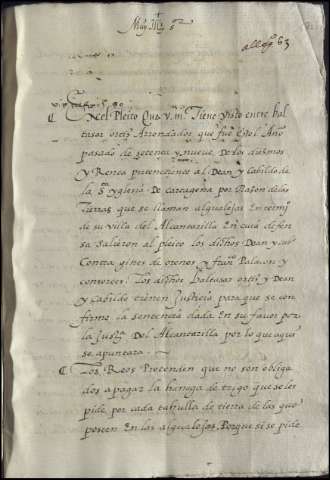 Muy Ille Sr
alleg 63
En el Pleito Que v. m. Tiene visto entre bal
tasar ortiz Arrendador que fue estel Año
pasado de setenta y nueve De los diesmos
y Renta pertenecientes al Dean y Cabildo de
la Sta yglesia De Cartagena por Rason de las
Tierras que se llaman alguaxas En termi
de su villa del Alcantarilla En cuia defen
sa salieron al pleito los dichos Dean y
Contra gines de orenes y fran Palaçon y
consortes. Los dichos baltasar ortiz y Dean
y Cabildo tienen Justicia para que se con
firme la sentencia dada En su favor por
la Justa Del Alcantarilla por lo que aqui
se apuntara
Los Reos Pretenden que no son obliga
dos a pagar la hanega de trigo que se les
pide por cada tahulla de tierra de las que
poseen En las Porque si se pide